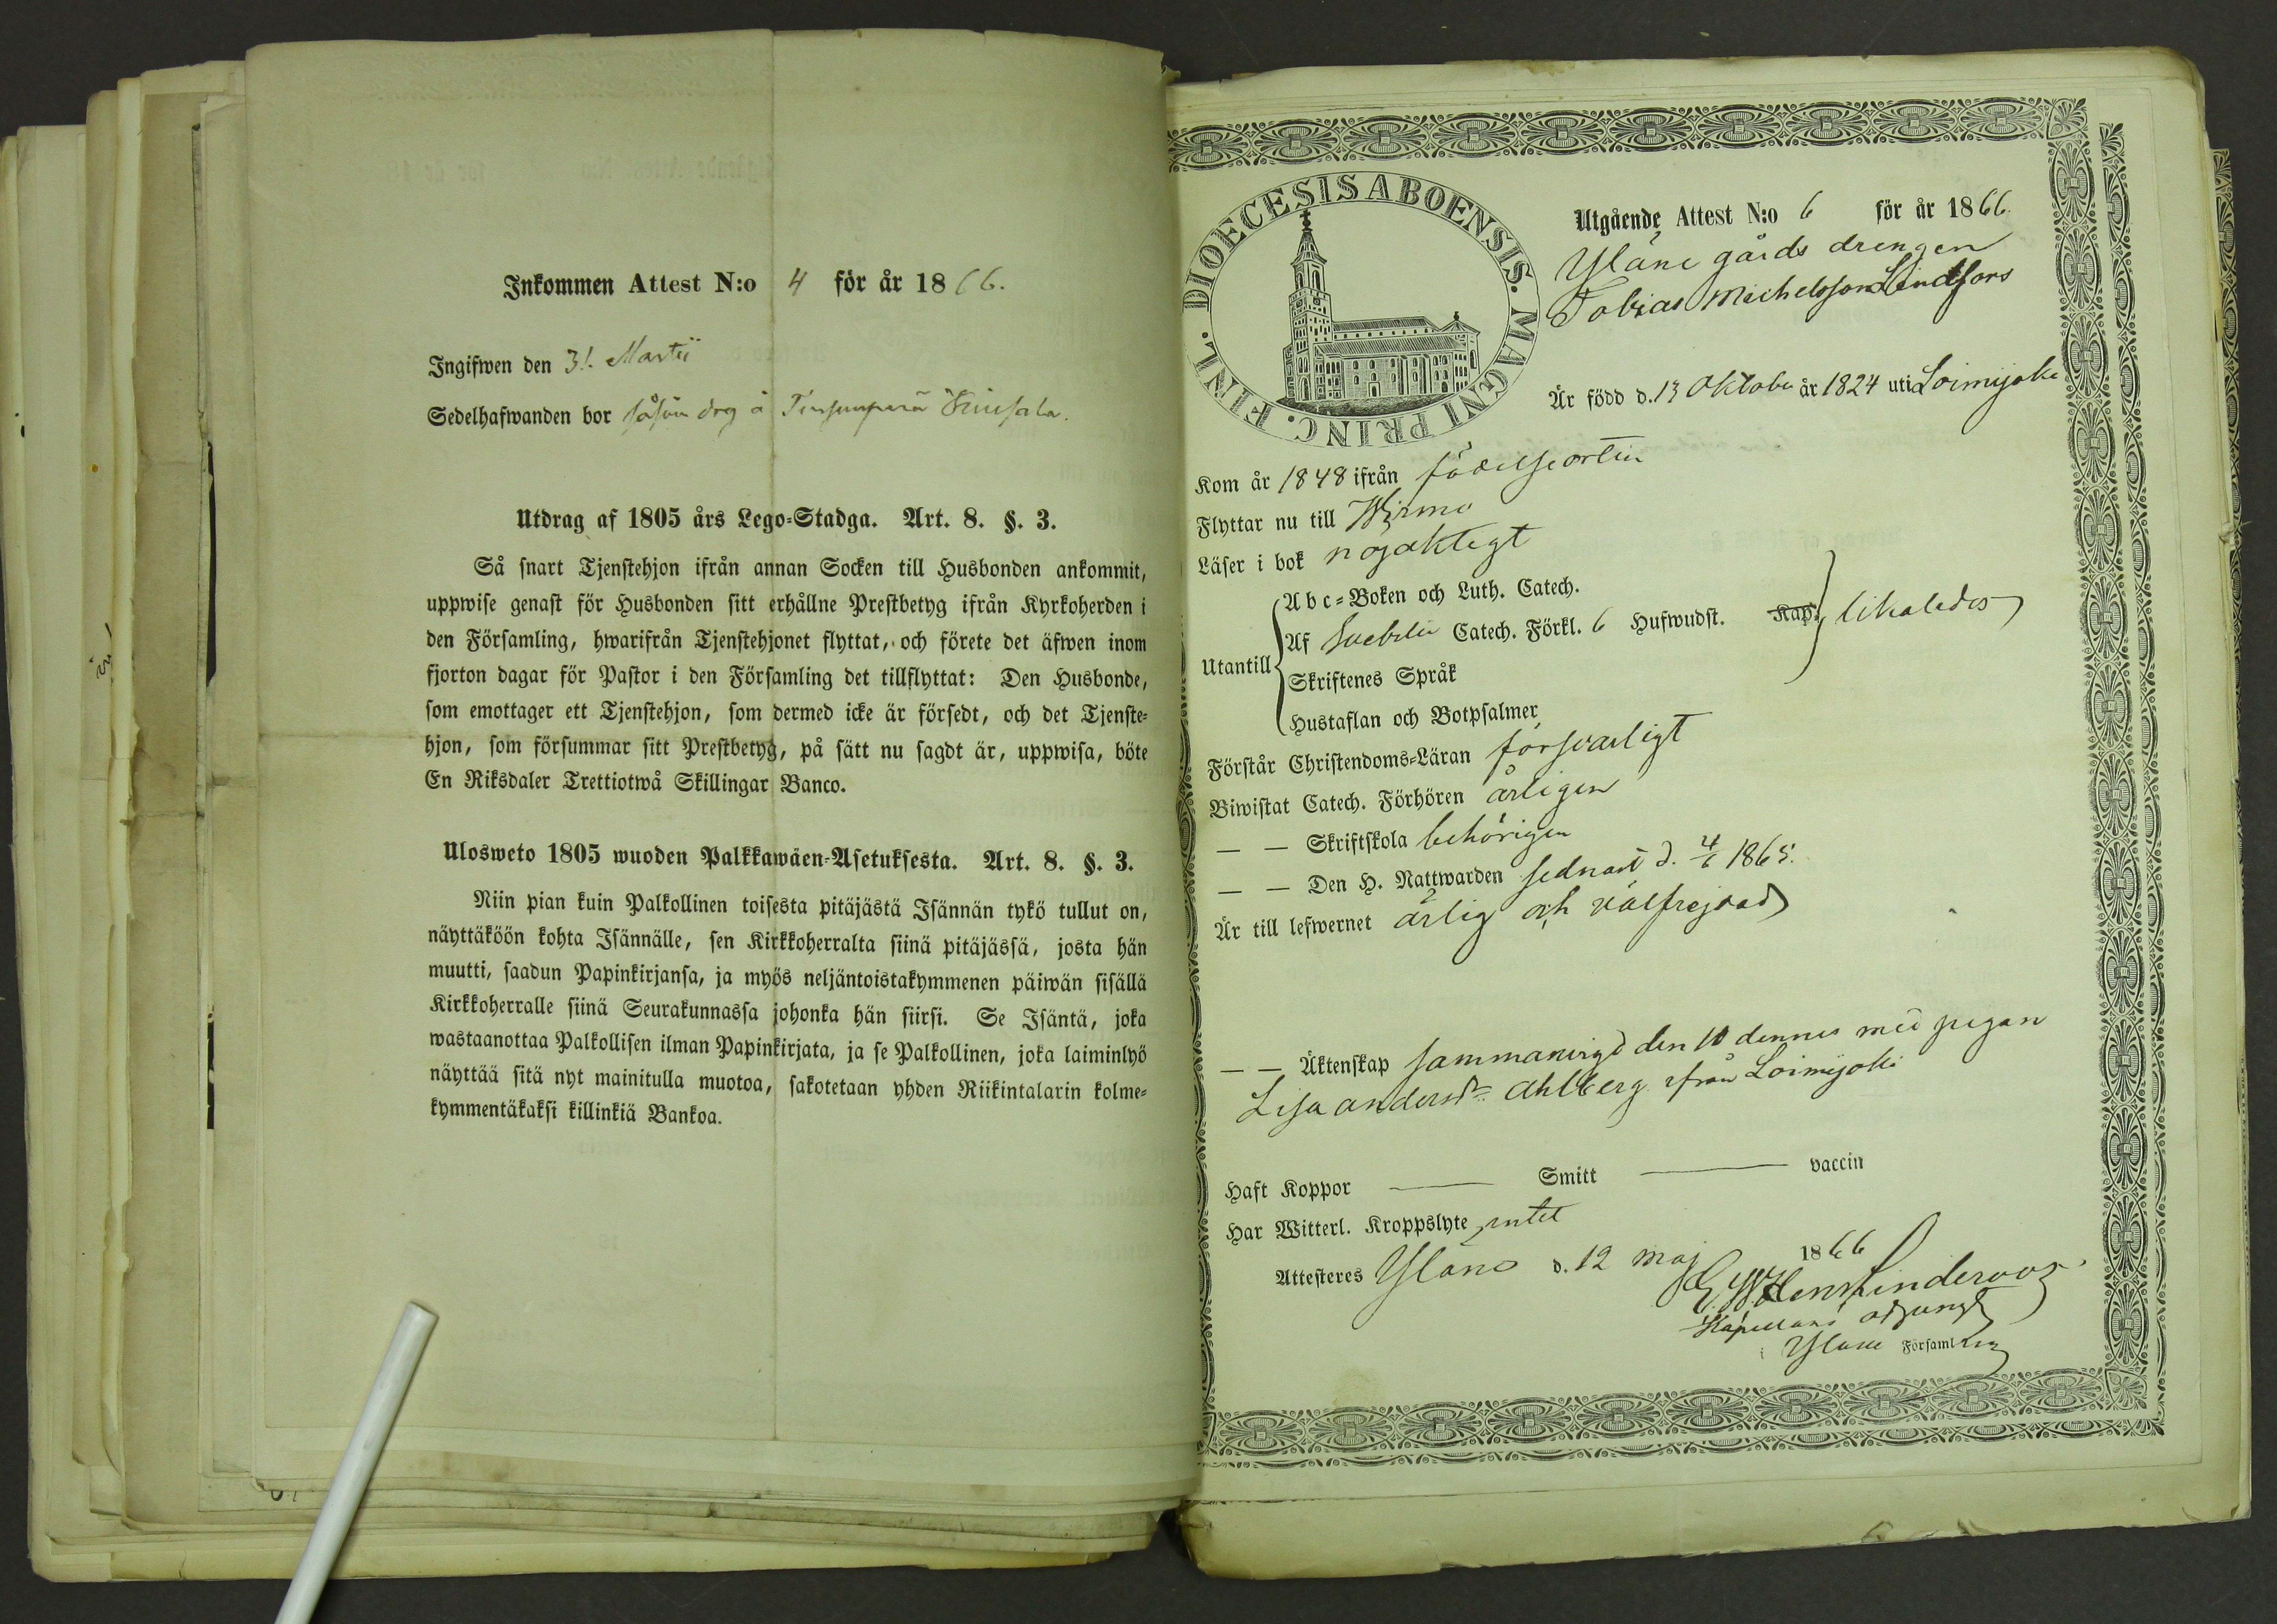 Inkommen Attest N:o 4 för år 1866.
Ingifwen den 31. Martii
Sedelhafwanden bor såsom drg å
Utdrag af 1805 års Lego-Stadga. Art. 8. §. 3.
Så snart Tjenstehjon ifrån annan Socken till Husbonden ankommit,
uppwise genast för Husbonden sitt erhållne Prestbetyg ifrån Kyrkoherden i
den Församling, hwarifrån Tjenstehjonet flyttat, och förete det äfwen inom
fjorton dagar för Pastor i den Församling det tillflyttat: Den Husbonde,
som emottager ett Tjenstehjon, som dermed icke är försedt, och det Tjenste-
hjon, som försummar sitt Prestbetyg, på sätt nu sagdt är, uppwisa, böte
En Riksdaler Trettiotwå Skillingar Banco.
Ulosweto 1805 wuoden Palkkawäen-Asetuksesta. Art. 8. §. 3.
Niin pian kuin Palkollinen toisesta pitäjästä Isännän tykö tullut on,
näyttäköön kohta Isännälle, sen Kirkkoherralta siinä pitäjässä, josta hän
muutti, saadun Papinkirjansa, ja myös neljäntoistakymmenen päiwän sisällä
Kirkkoherralle siinä Seurakunnassa johonka hän siirsi. Se Isäntä, joka
wastaanottaa Palkollisen ilman Papinkirjata, ja se Palkollinen, joka laiminlyö
näyttää sitä nyt mainitulla muotoa, sakotetaan yhden Riikintalarin kolme-
kymmentäkaksi killinkiä Bankoa.
DIOECESIS ABOENSIS. MAGNI PRINC. FINL.
Utgående Attest N:o 6 för år 1866.
Yläne gårds drengen
Tobias Michelsson Lindfors
Är född d. 13 Oktober år 1824 uti Loimijoki
Kom år 1848 ifrån födelseorten
Flyttar nu till Wirmo
Läser i bok nöjaktigt
Utantill
Abc-Boken och Luth. Catech.
Af Svebelii Catech. Förkl. 6 Hufwudst. Kap. likaledes
Skriftenes Språk
Hustaflan och Botpsalmer
Förstår Christendoms-Läran försvarligt
Biwistat Catech. Förhören årligen
— — Skriftskola behörigen
— — Den H. Nattwarden sednast d. 4/6 1865.
Är till lefwernet ärlig och välfrejdad
— — Äktenskap sammanvigd den 10 dennes med pigan
Lisa Andersdr Ahlberg ifrån Loimijoki
Haft Koppor — Smitt — vaccin
Har Witterl. Kroppslyte intet
Attesteres Yläne d. 12 maj 1866
Linderoos
Kapellans adjunkt
i Yläne Församling